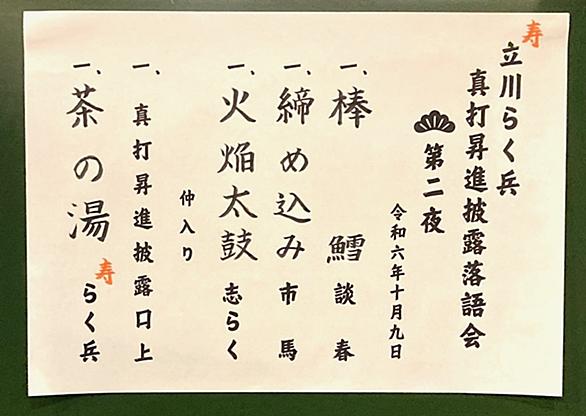 寿
立川らく兵
真打昇進披露落語会
第二夜
令和六年十月九日
一、棒鱈 談春
一、締め込み 市馬
一、火焔太鼓 志らく
仲入り
一、真打昇進披露口上
一、茶の湯 寿 らく兵